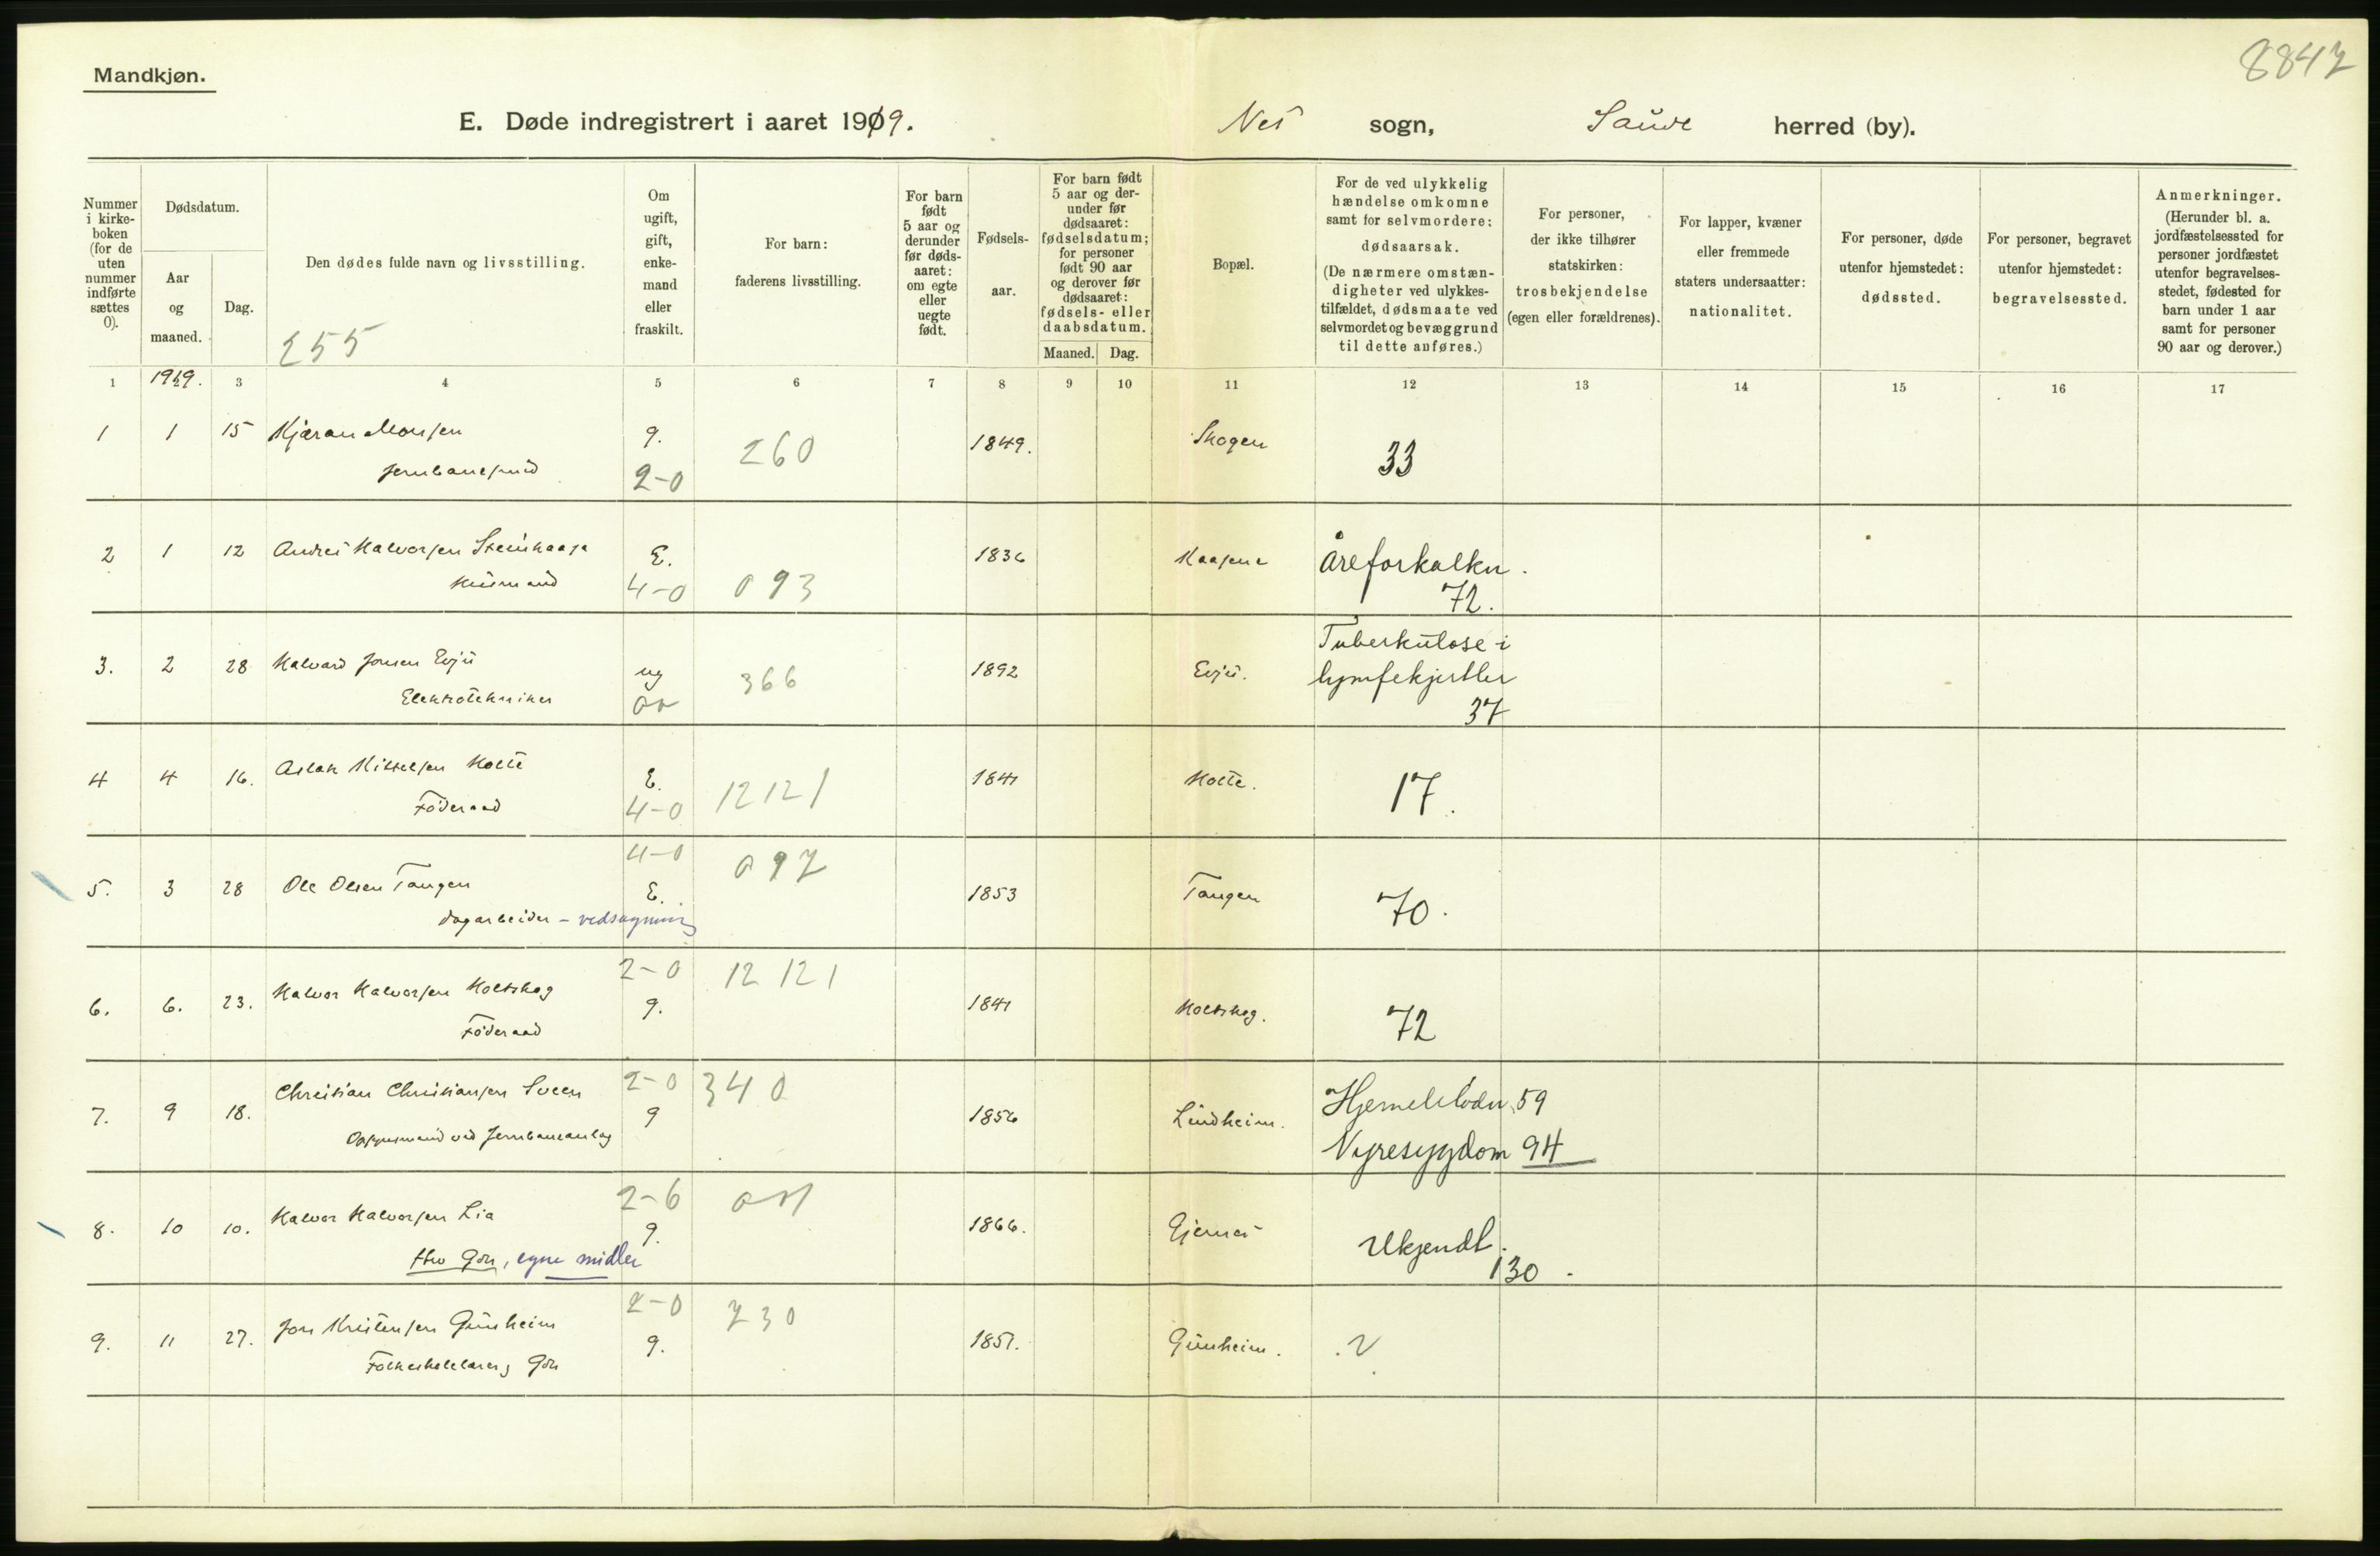 8847
Mandkjøn.
E. Døde indregistrert i aaret 1909.
Nes sogn, Saude herred (by).
Nummer i kirke-boken (for de uten nummer indførte sættes 0).
Dødsdatum.
Aar og maaned.
Dag.
Den dødes fulde navn og livsstilling.
255
Om ugift, gift, enke-mand eller fraskilt.
For barn: faderens livsstilling.
For barn født 5 aar og derunder før døds-aaret: om egte eller uegte født.
Fødsels-aar.
For barn født 5 aar og der-under før dødsaaret: fødselsdatum; for personer født 90 aar og derover før dødsaaret: fødsels- eller daabsdatum.
Maaned. Dag.
Bopæl.
For de ved ulykkelig hændelse omkomne samt for selvmordere: dødsaarsak.
(De nærmere omstæn-digheter ved ulykkes-tilfældet, dødsmaate ved selvmordet og bevæggrund til dette anføres.)
For personer, der ikke tilhører statskirken: trosbekjendelse (egen eller forældrenes).
For lapper, kvæner eller fremmede staters undersaatter: nationalitet.
For personer, døde utenfor hjemstedet: dødssted.
For personer, begravet utenfor hjemstedet: begravelsessted.
Anmerkninger.
(Herunder bl. a. jordfæstelsessted for personer jordfæstet utenfor begravelses-stedet, fødested for barn under 1 aar samt for personer 90 aar og derover.)
1 1919. 3 4 5 6 7 8 9 10 11 12 13 14 15 16 17
1 1 15 Kjæran Monsen g. 260 1849. Skogen 33
Jernbanesmid 2-0
2 1 12 Andres Halvorsen Steinhaasa E. 1836 Haasene Åreforkalkn.
Husmand 4-0 093 72.
3. 2 28 Halvard Jonsen Evju ug 366 1892 Evju. Tuberkulose i
lymfekjertler
Elektrotekniker 37
4 4 16. Aslak Kittelsen Holte E. 1841 Holte. 17.
Föderaad 4-0 12121
4-0 097
5. 3 28 Ole Olsen Tangen E. 1853 Tangen 70.
dagarbeider - vedsagning
2-0 12121
6. 6. 23. Halvor Halvorsen Holtskog g. 1841 Holtskog. 72
Föderaad
2-0 340
7. 9 18. Christian Christiansen Sveen g 1856 Lindheim. Hjerneblødn. 59
Opsynsmand ved Jernbaneanlæg Nyresygdom 94
2-6
8. 10 10. Halvor Halvorsen Lia g. 1866. Gjernes Ukjendt.
fhv Gbr, egne midler 130.
2-0 730
9. 11 27. Jon Kristensen Gunheim g. 1851. Gunheim.
Folkeskolelærer, Gbr